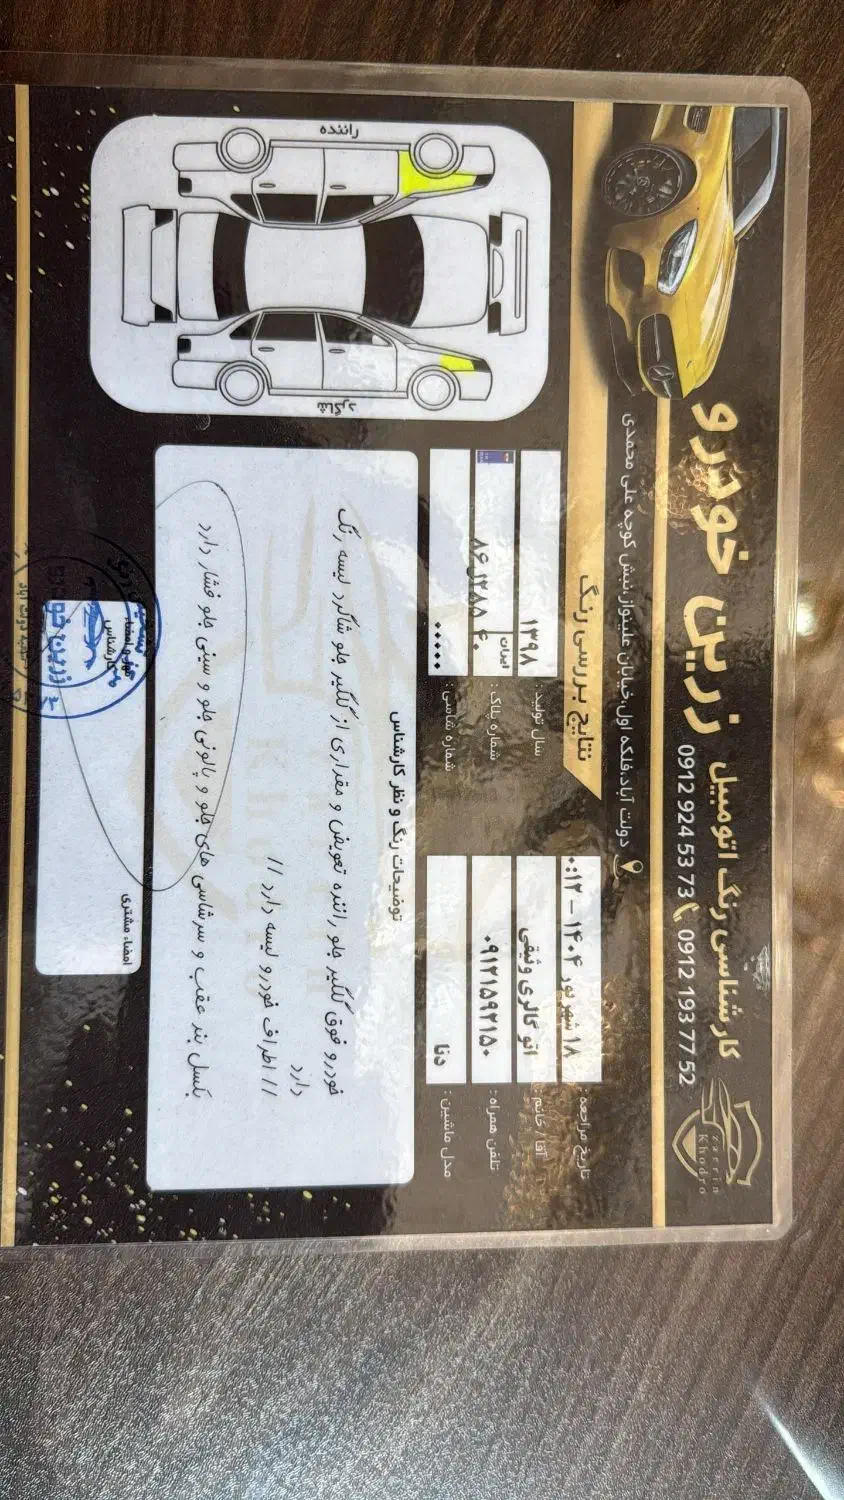 زرین خودرو
کارشناسی رنگ اتومبیل
0912 924 53 73 0912 193 77 52
دولت آباد،فلکه اول،خیابان علینواز،نبش کوچه علی محمدی
zarrin
Khodro
نتایج بررسی رنگ
تاریخ مراجعه : ۱۸ شهریور ۱۴۰۴ – ۰:۱۲
آقا / خانم : اتو گالری وثیقی
تلفن همراه : ۰۹۱۲۱۵۹۲۱۵۰
مدل ماشین : دنا
سال تولید : ۱۳۹۸
شماره پلاک : ۸۶ل۲۸۸ ایران ۴۰
شماره شاسی : •••••
راننده
شاگرد
توضیحات رنگ و نظر کارشناس
خودرو فوق گلگیر جلو راننده تعویض و مقداری از گلگیر جلو شاگرد لیسه رنگ
دارد
// اطراف خودرو لیسه دارد //
بکسل بند عقب و سرشاسی های جلو و پالونی جلو و سینی جلو فشار دارد
مهر و امضاء
کارشناس
امضاء مشتری